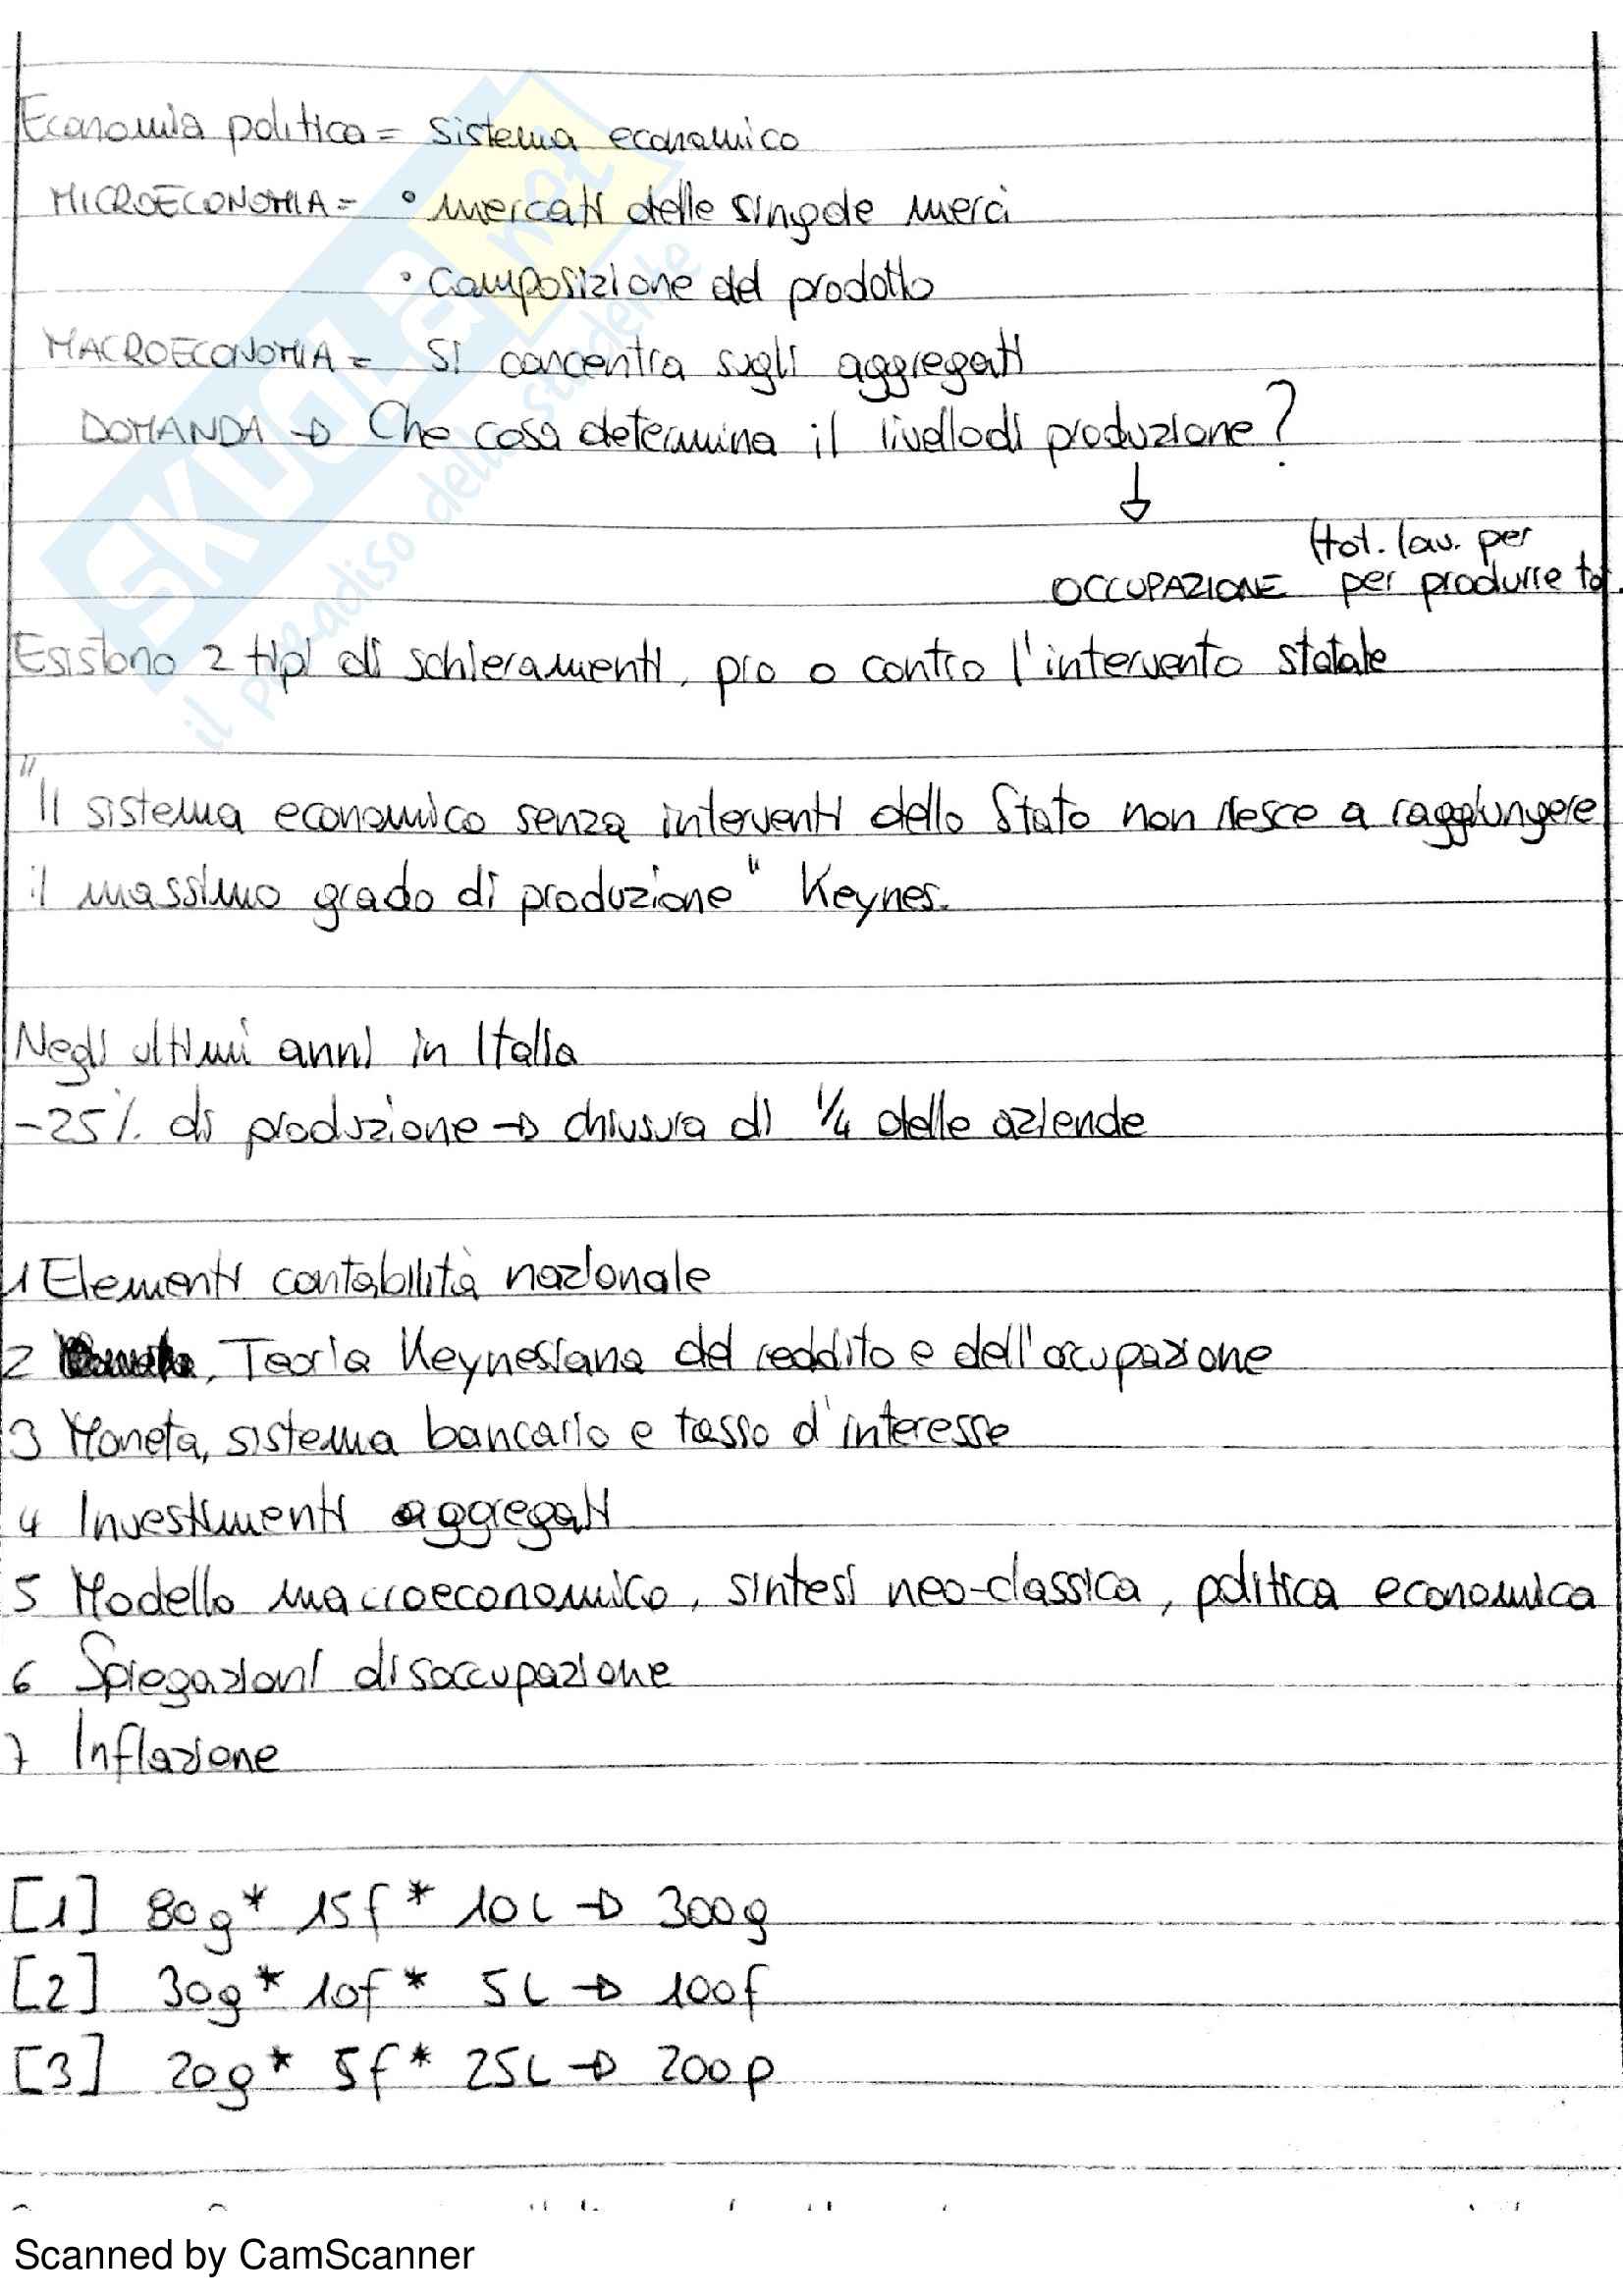 Economia politica = sistema economico
MICROECONOMIA = • mercati delle singole merci
• composizione del prodotto
MACROECONOMIA = si concentra sugli aggregati
DOMANDA → Che cosa determina il livello di produzione?
↓
(tot. lav. per
OCCUPAZIONE per produrre tot.
Esistono 2 tipi di schieramenti, pro o contro l'intervento statale
"Il sistema economico senza interventi dello Stato non riesce a raggiungere
il massimo grado di produzione" Keynes.
Negli ultimi anni in Italia
-25% di produzione → chiusura di 1/4 delle aziende
1 Elementi contabilità nazionale
2 , Teoria Keynesiana del reddito e dell'occupazione
3 Moneta, sistema bancario e tasso d'interesse
4 Investimenti aggregati
5 Modello macroeconomico, sintesi neo-classica, politica economica
6 Spiegazioni disoccupazione
7 Inflazione
[1] 80g * 15f * 10L → 300g
[2] 30g * 10f * 5L → 100f
[3] 20g * 5f * 25L → 200p
Scanned by CamScanner
SKUOLA.net
il paradiso dello studente